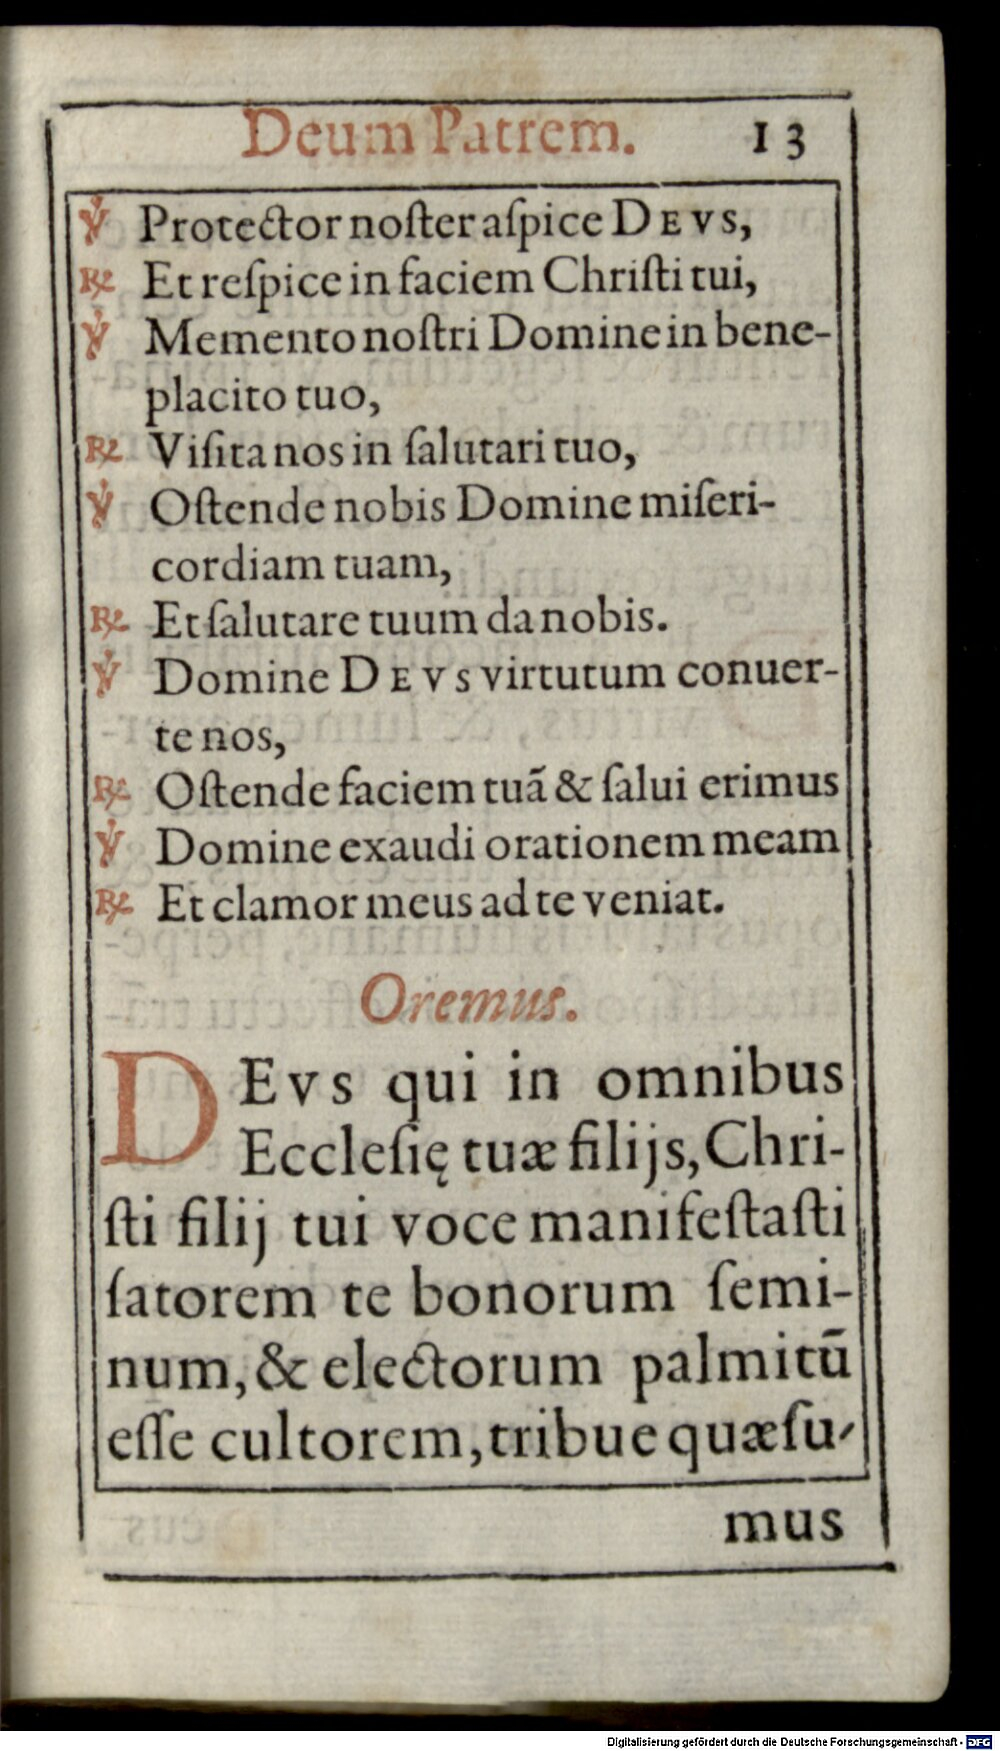 Deum Patrem. 13
℣ Protector noſter aſpice DEVS,
℟ Et reſpice in faciem Chriſti tui,
℣ Memento noſtri Domine in bene-
placito tuo,
℟ Viſita nos in ſalutari tuo,
℣ Oſtende nobis Domine miſeri-
cordiam tuam,
℟ Et ſalutare tuum da nobis.
℣ Domine DEVS virtutum conuer-
te nos,
℟ Oſtende faciem tuã & ſalui erimus
℣ Domine exaudi orationem meam
℟ Et clamor meus ad te veniat.
Oremus.
DEVS qui in omnibus
Eccleſię tuæ filijs, Chri-
ſti filij tui voce manifeſtaſti
ſatorem te bonorum ſemi-
num, & electorum palmitū
eſſe cultorem, tribue quæſu-
mus
Digitalisierung gefördert durch die Deutsche Forschungsgemeinschaft - DFG